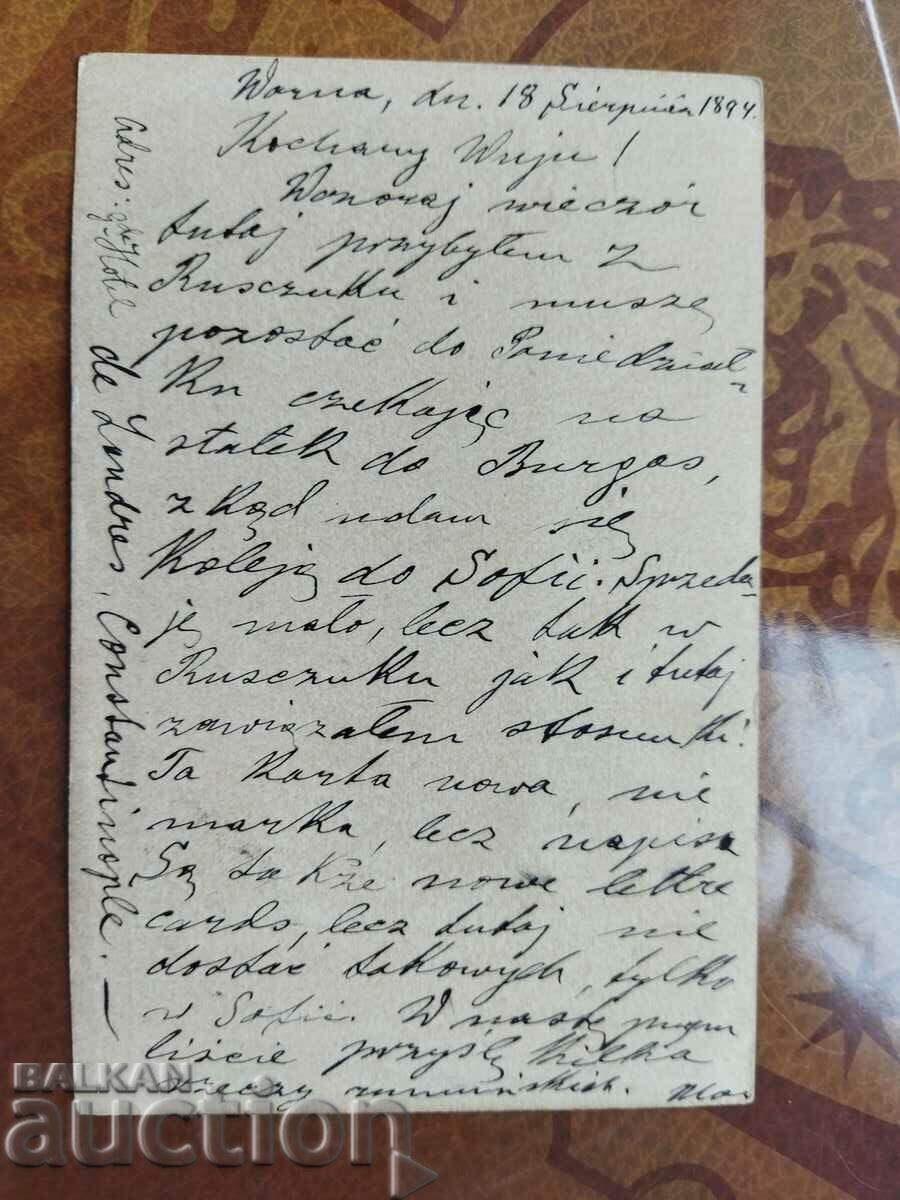 Warna, dn. 18 Sierpnia 1894.
Kochany Wuju!
Wczoraj wieczór
tutaj przybyłem z
Rusczuku i muszę
pozostać do Poniedział-
ku czekając na
statek do Burgas,
zkąd udam się
koleją do Sofii. Sprzeda-
ję mało, lecz tak w
Rusczuku jak i tutaj
zawiązałem stosunki.
Ta karta nowa, nie
marka, lecz napis.
Są także nowe lettre
cards, lecz tutaj nie
dostać takowych, tylko
w Sofii. W następnym
liście przyślę kilka
rzeczy rumuńskich.
adres: Hotel de Londres, Constantinople. —
BALKAN
auction